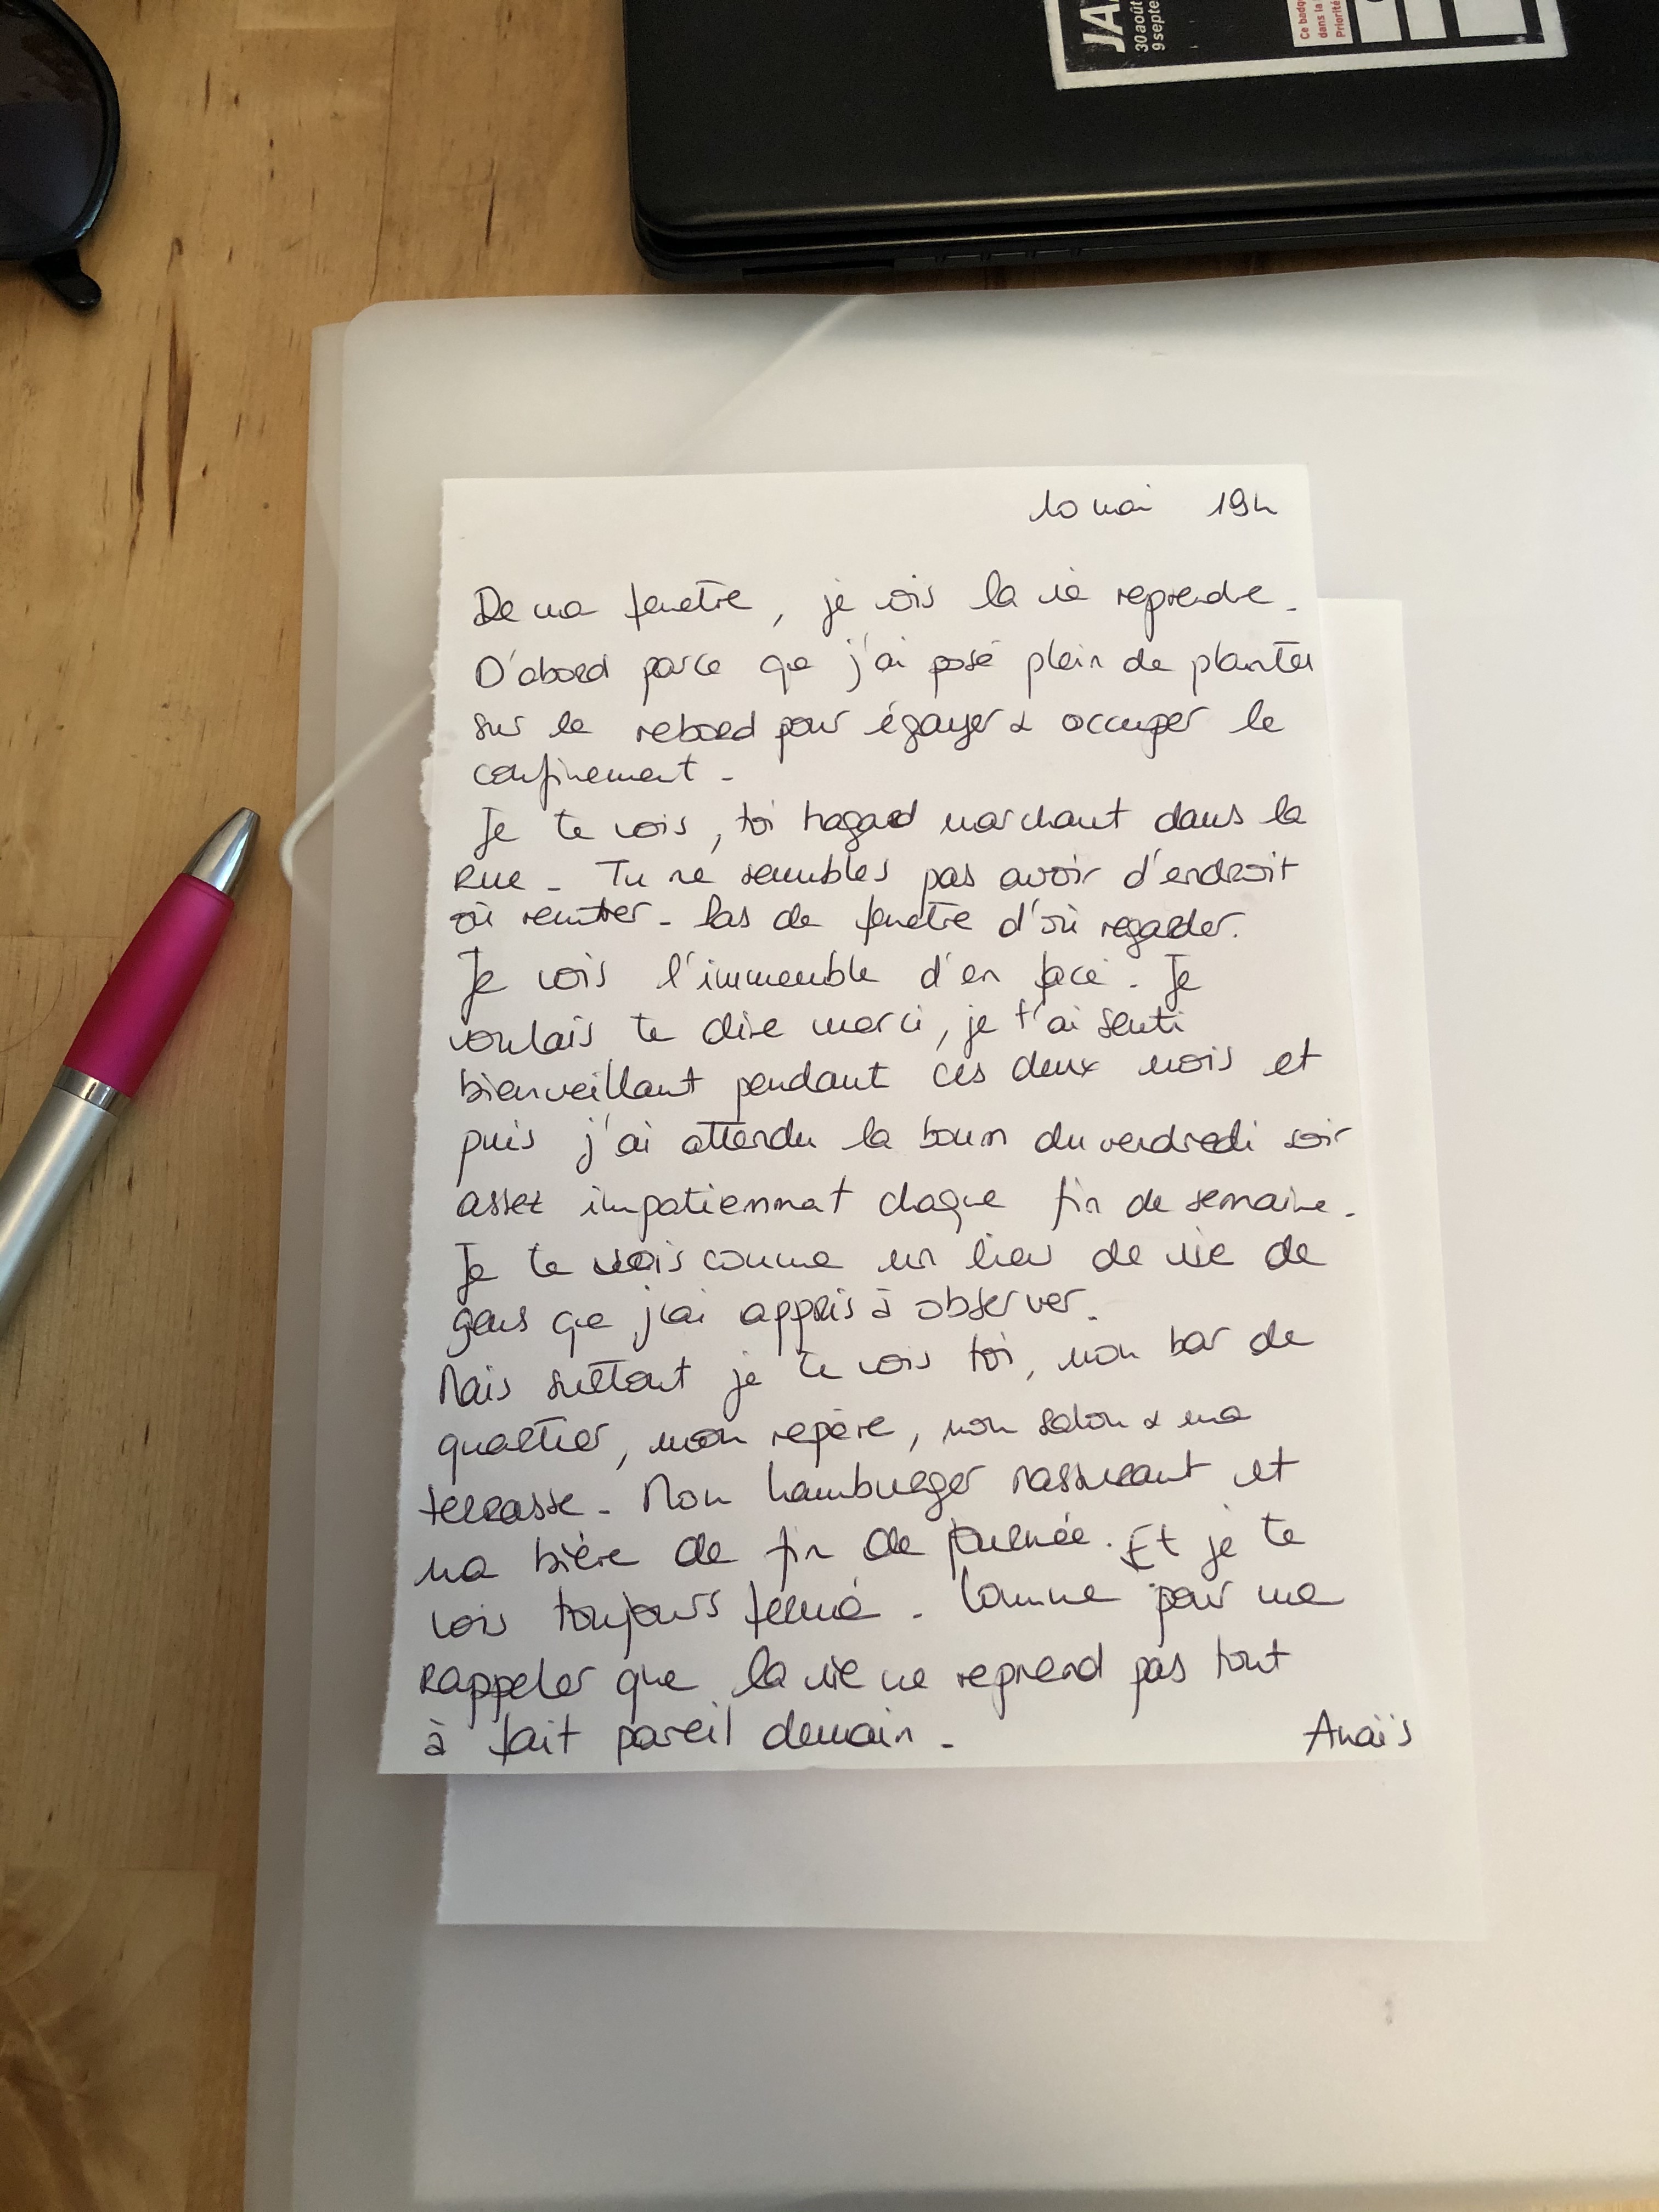 JA
30 août
9 septe
Ce badg
dans la
Priorité
10 mai 19h
De ma fenêtre, je vois la vie reprendre.
D'abord parce que j'ai posé plein de plantes
sur le rebord pour égayer & occuper le
confinement.
Je te vois, toi hagard marchant dans la
rue. Tu ne sembles pas avoir d'endroit
où rentrer. Pas de fenêtre d'où regarder.
Je vois l'immeuble d'en face. Je
voulais te dire merci, je t'ai senti
bienveillant pendant ces deux mois et
puis j'ai attendu la boum du vendredi soir
assez impatiemmat chaque fin de semaine.
Je te vois comme un lieu de vie de
gens que j'ai appris à observer.
Mais surtout je te vois toi, mon bar de
quartier, mon repère, mon salon & ma
terrasse. Mon hamburger rassurant et
ma bière de fin de journée. Et je te
vois toujours fermé. Comme pour me
rappeler que la vie ne reprend pas tout
à fait pareil demain.
Anaïs